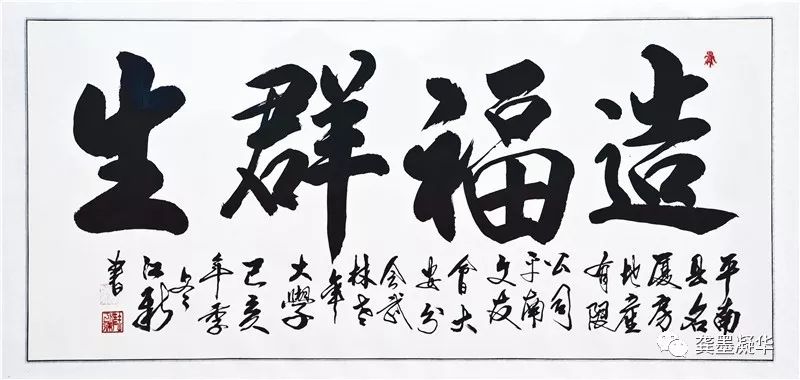 造福群生
平南
县名
厦房
地產
有限
公司
平南
文友
會大
安分
会武
林老
年
大學
己亥
年季
冬
江
書
龚墨凝华